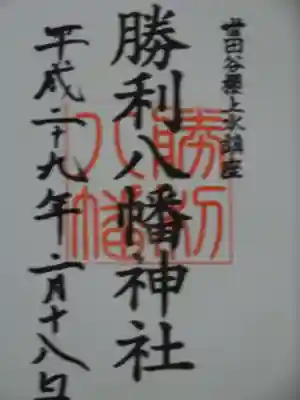 世田谷櫻上水鎮座
勝利八幡神社
平成二十九年二月十八日
勝利
八幡